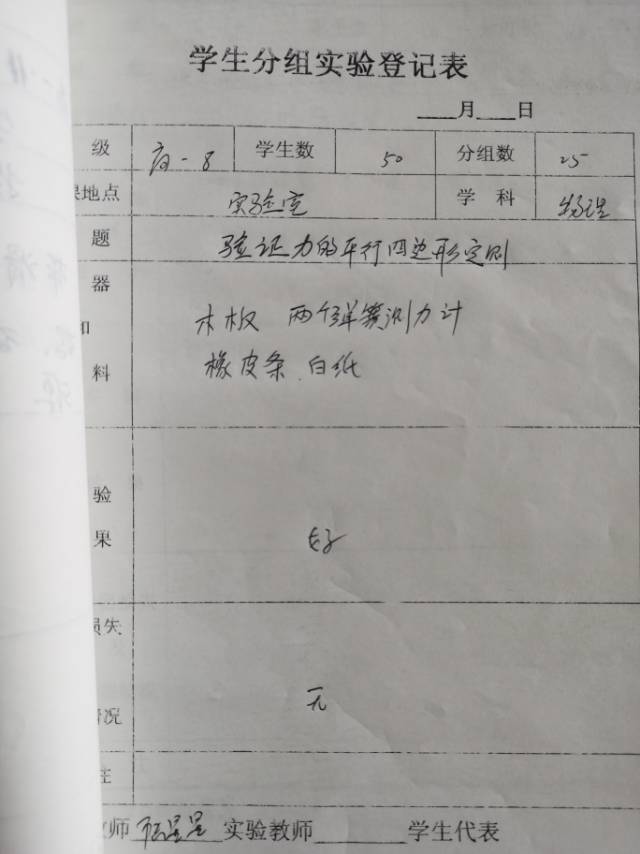 学生分组实验登记表
月 日
级 高一8 学生数 50 分组数 25
地点 实验室 学科 物理
题 验证力的平行四边形定则
器 木板 两个弹簧测力计
料 橡皮条 白纸
验
果 好
损失
无
情况
注
教师 星星 实验教师 学生代表